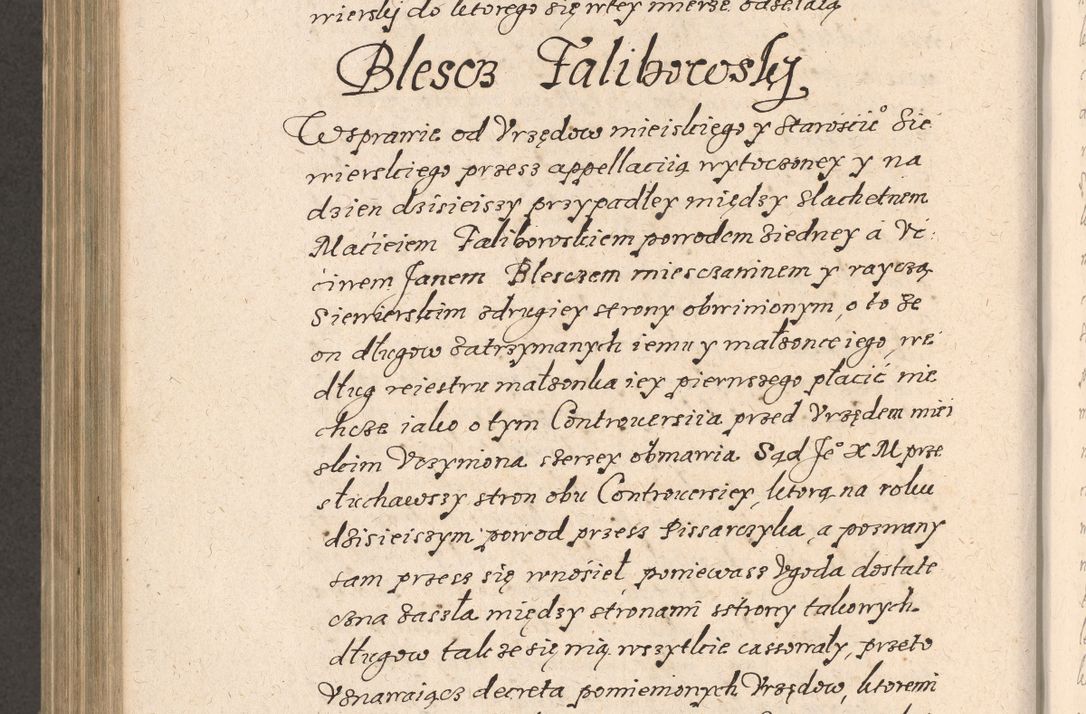 wierskj do ktorego się wtey mierze odzełaią
Blescz Faliborowskj
W sprawie od Vrzędow mieiskięgo y staroście° Sie
wierskiego przesz appellaciią wytoczoney y na
dzien dzisieiszy przypadłey między slachetnem
Maćieiem Faliborowskiem powodem ziedney á Vć:
ćiwem Janem Blesczem miesczaninem y rayczą
Siewierskim zdrugiey strony obwinionym, o to że
on długow zatrzymanych iemu y małżonce iego, we
dług reiestru małżonka iey pierwszego płacić nie
chcze iako o tym Controuersiia przed Vrzędem miei
skim Vczyniona szerzey obmawia Sąd Je° X M prze
słuchawszy stron obu Controuersiey, ktorą na roku
dzisieiszym powod przesz Pissarczyka, a poznany
sam przesz się wnosieł, poniewasz Vgoda dostate
czna zaszła między stronami sstrony takowych
długow tak że się nią wszytkie cassowały, przeto
Vznawaiącz decreta pomienionych Vrzędow, ktoremi